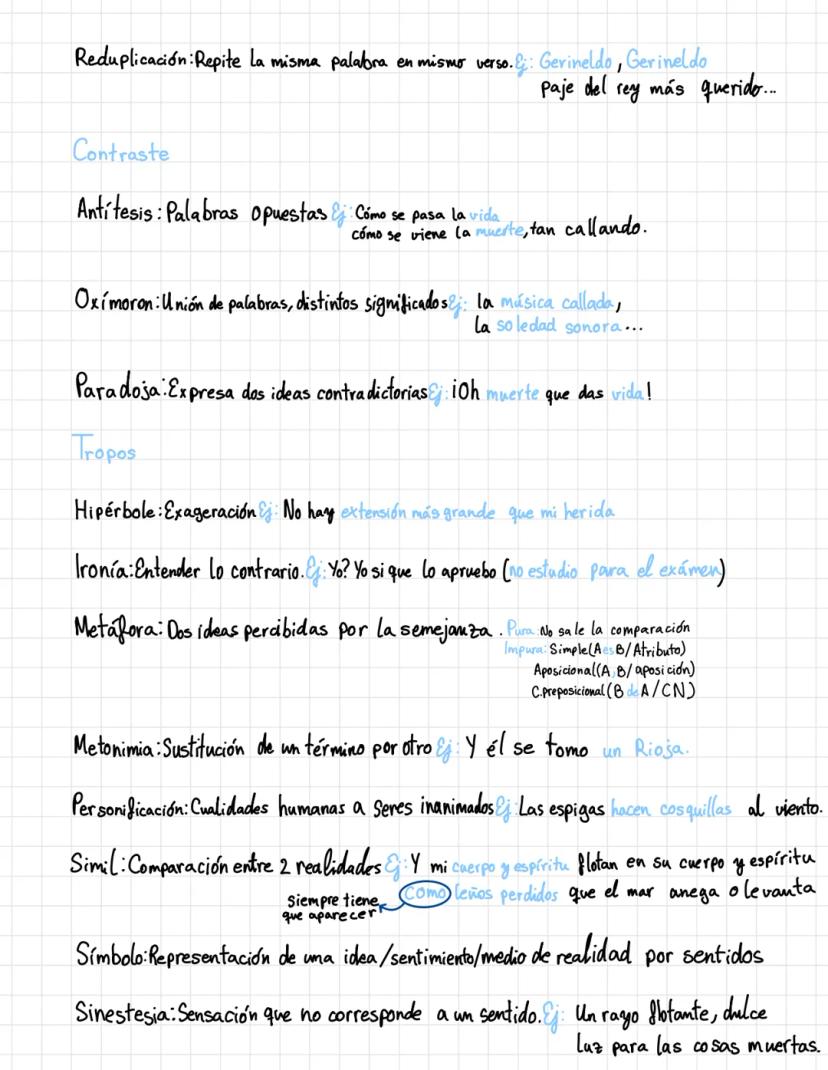 Reduplicación:Repite la misma palabra en mismo verso. Ej: Gerineldo, Gerineldo
paje del rey más querido...
Contraste
Antítesis: Palabras opuestas Ej: Cómo se pasa la vida
cómo se viene la muerte, tan callando.
Oxímoron: Unión de palabras, distintos significados Ej: la música callada,
la soledad sonora...
Paradoja: Expresa dos ideas contradictorias Ej: ¡Oh muerte que das vida!
Tropos
Hipérbole: Exageración Ej: No hay extensión más grande que mi herida
Ironía: Entender lo contrario. Ej: Yo? Yo si que lo apruebo (no estudio para el exámen)
Metáfora: Dos ideas percibidas por la semejanza. Pura: No sale la comparación
Impura: Simple(A es B/Atributo)
Aposicional(A,B/aposición)
C.preposicional(B de A/CN)
Metonimia: Sustitución de un término por otro Ej: Y él se tomo un Rioja.
Personificación: Cualidades humanas a seres inanimados Ej: Las espigas hacen cosquillas al viento.
Simil: Comparación entre 2 realidades Ej: Y mi cuerpo y espíritu flotan en su cuerpo y espíritu
como leños perdidos que el mar anega o levanta
Siempre tiene
que aparecer
Símbolo: Representación de una idea/sentimiento/medio de realidad por sentidos
Sinestesia: Sensación que no corresponde a un sentido. Ej: Un rayo flotante, dulce
luz para las cosas muertas.